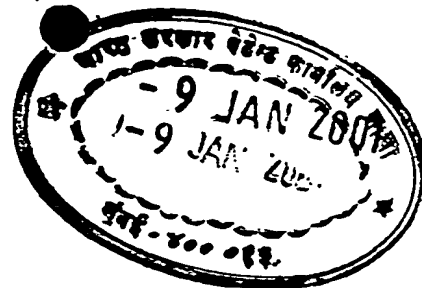 भारत सरकार पेटेन्ट कार्यालय
- 9 JAN
- 9 JAN
मुंबई - ४०० ०१३.